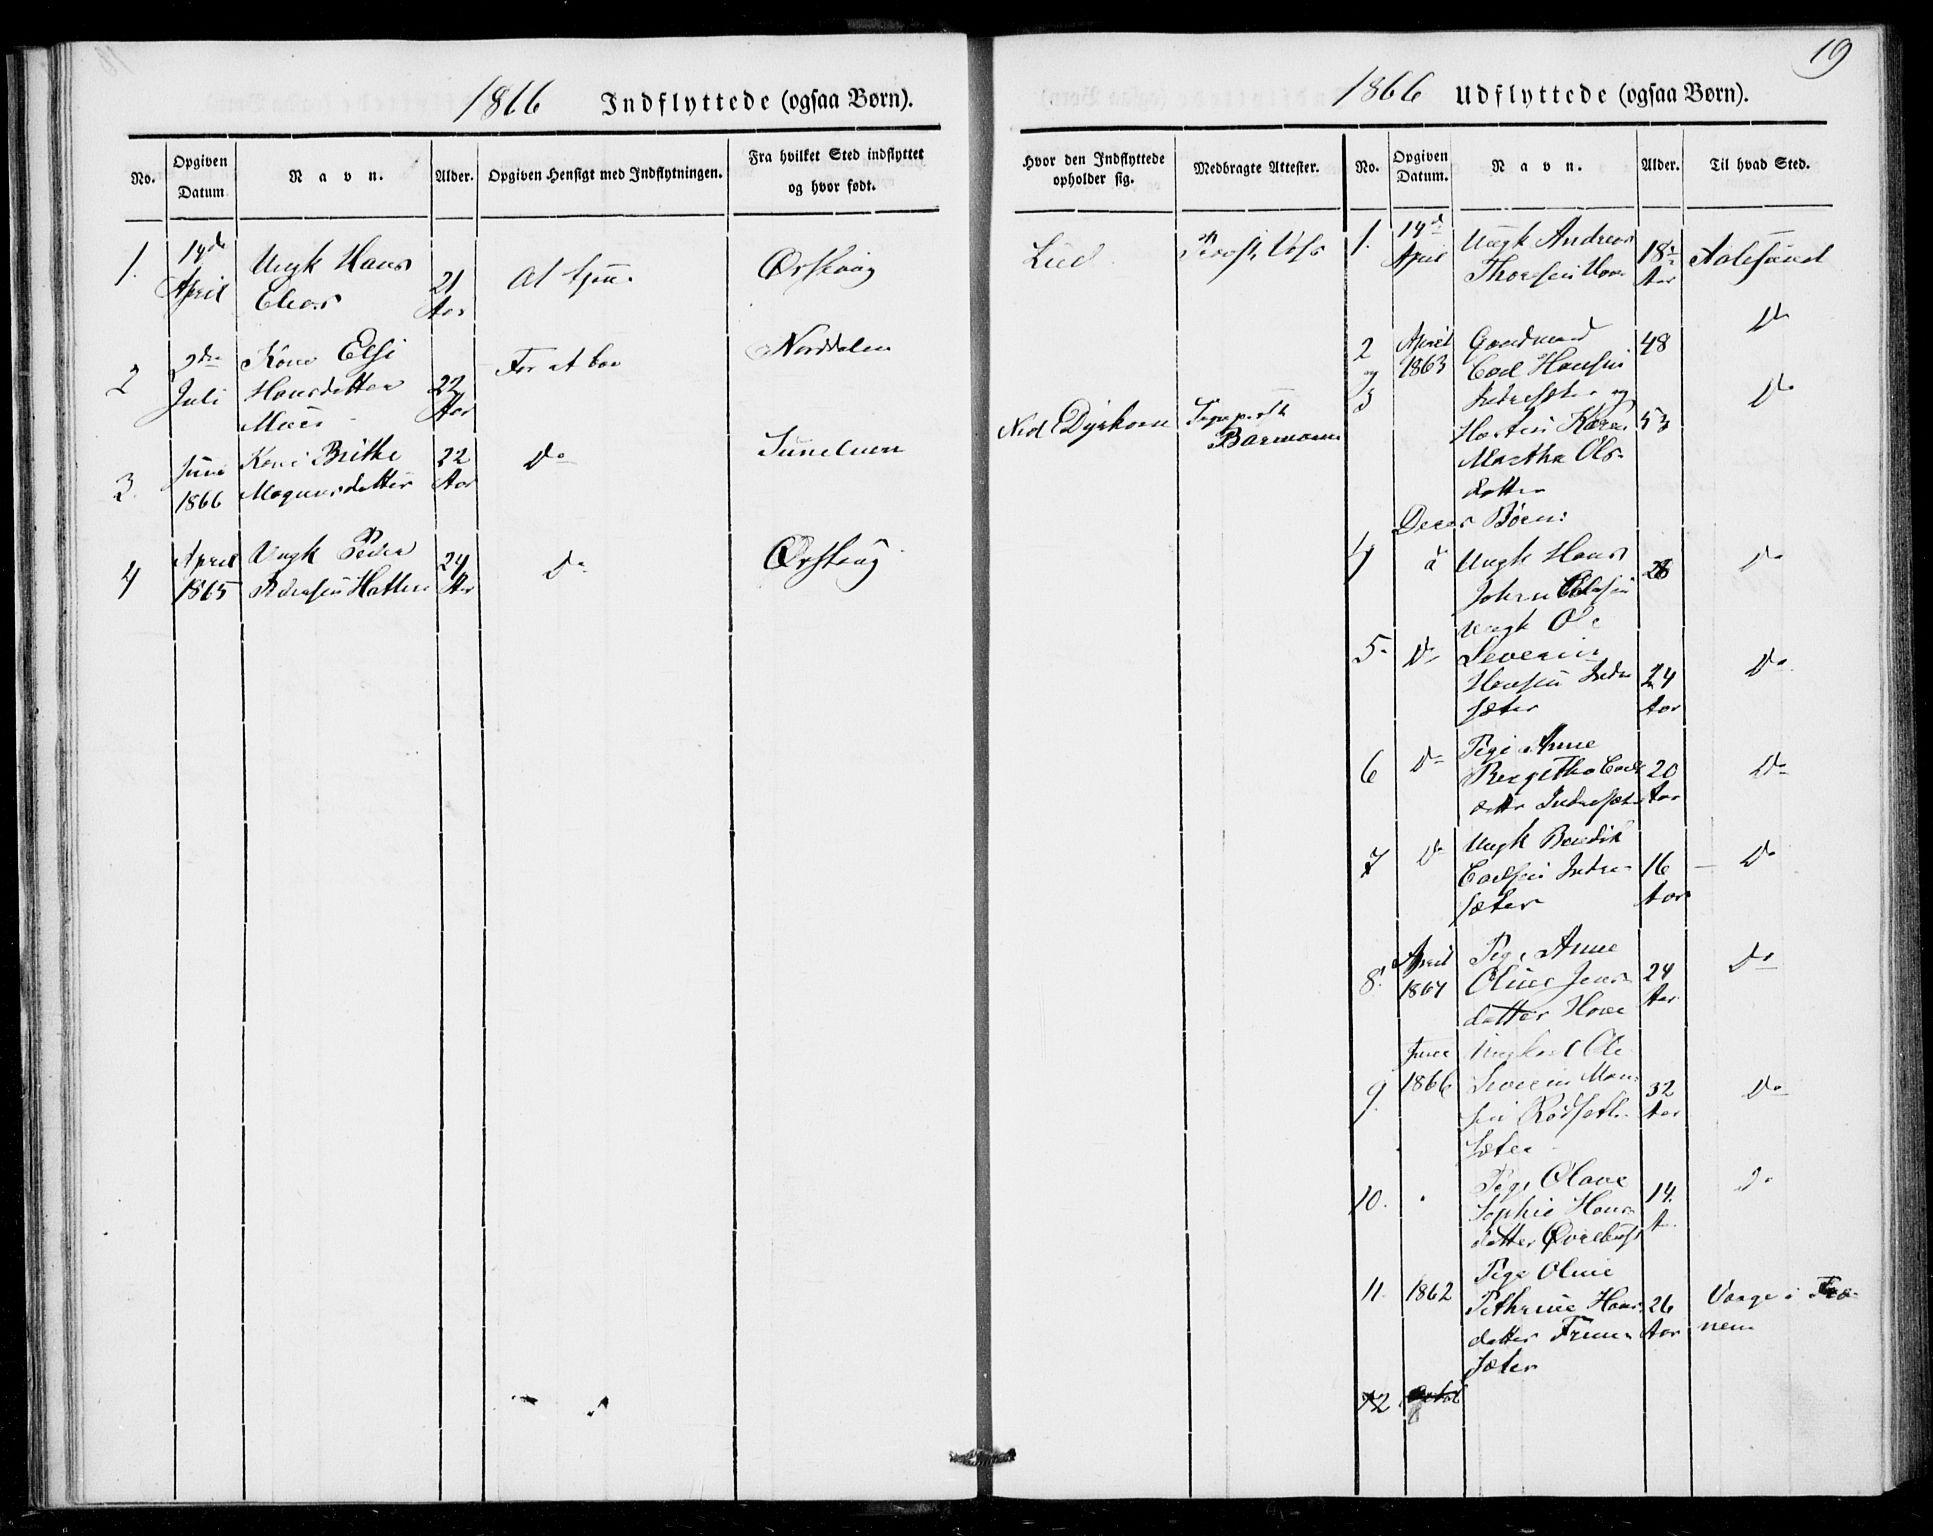 19
1866 Indflyttede (ogsaa Børn).
No.
Opgiven Datum
Navn.
Alder.
Opgiven Hensigt med Indflytningen.
Fra hvilket Sted indflyttet og hvor født.
Hvor den Indflyttede opholder sig.
Medbragte Attester.
1. 14de April
Ungk Hans
21 Aar
At tjene
Ørskoug
Lied
2 2den Juli
Kone Elsi
Hansdatter
22 Aar
For at boe
Norddalen
3. Juni 1866
Kone Brithe
Magnusdatter
22 Aar
Do
Sunelven
Ned Dyrkorn
4 April 1865
Ungk Peder
Pedersen Hatlen
24 Aar
Do
Ørskoug
1866 Udflyttede (ogsaa Børn).
No.
Opgiven Datum.
Navn.
Alder.
Til hvad Sted.
1. 14de April
Ungk Andreas
18 Aar
Aalesund
2 April 1863
Gaardmand
Carl Hansen
48
Do
og
3
Indresæter og
Hustru Karen
Martha Ols-
datter
53
Do
Deres Børn:
4
Ungk Hans
Johan Carlsen
28
Do
5. Do
Ungk Ole
Severin
Hansen Indre
sæter
24 Aar
Do
6 Do
Pige Anne
Bergitha Carls
datter Indresæter
20 Aar
Do
7 Do
Ungk Bendik
Carlsen Indre-
sæter
16 Aar
Do
8. April 1864
Pige Anne
Oline Jens-
datter Hove
24 Aar
Do
9. Juni 1866
Ungkarl Ole
Severin
Rødseth-
sæter
32 Aar
Do
10.
Pige Olave
Sophie Hans-
datter
14 A.
Do
11. 1862
Pige Oline
Pethrine Hans-
datter
sæter
26 Aar
Vaage i
12